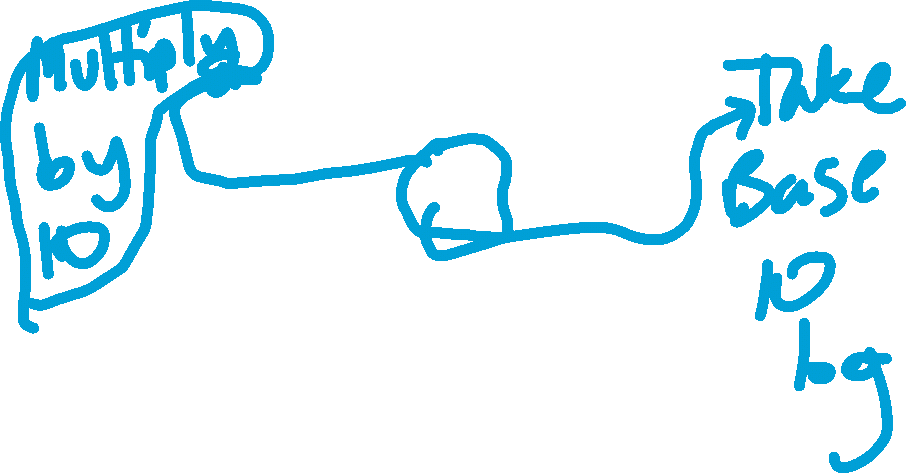 Multiply
by
10
Take
Base
10
log